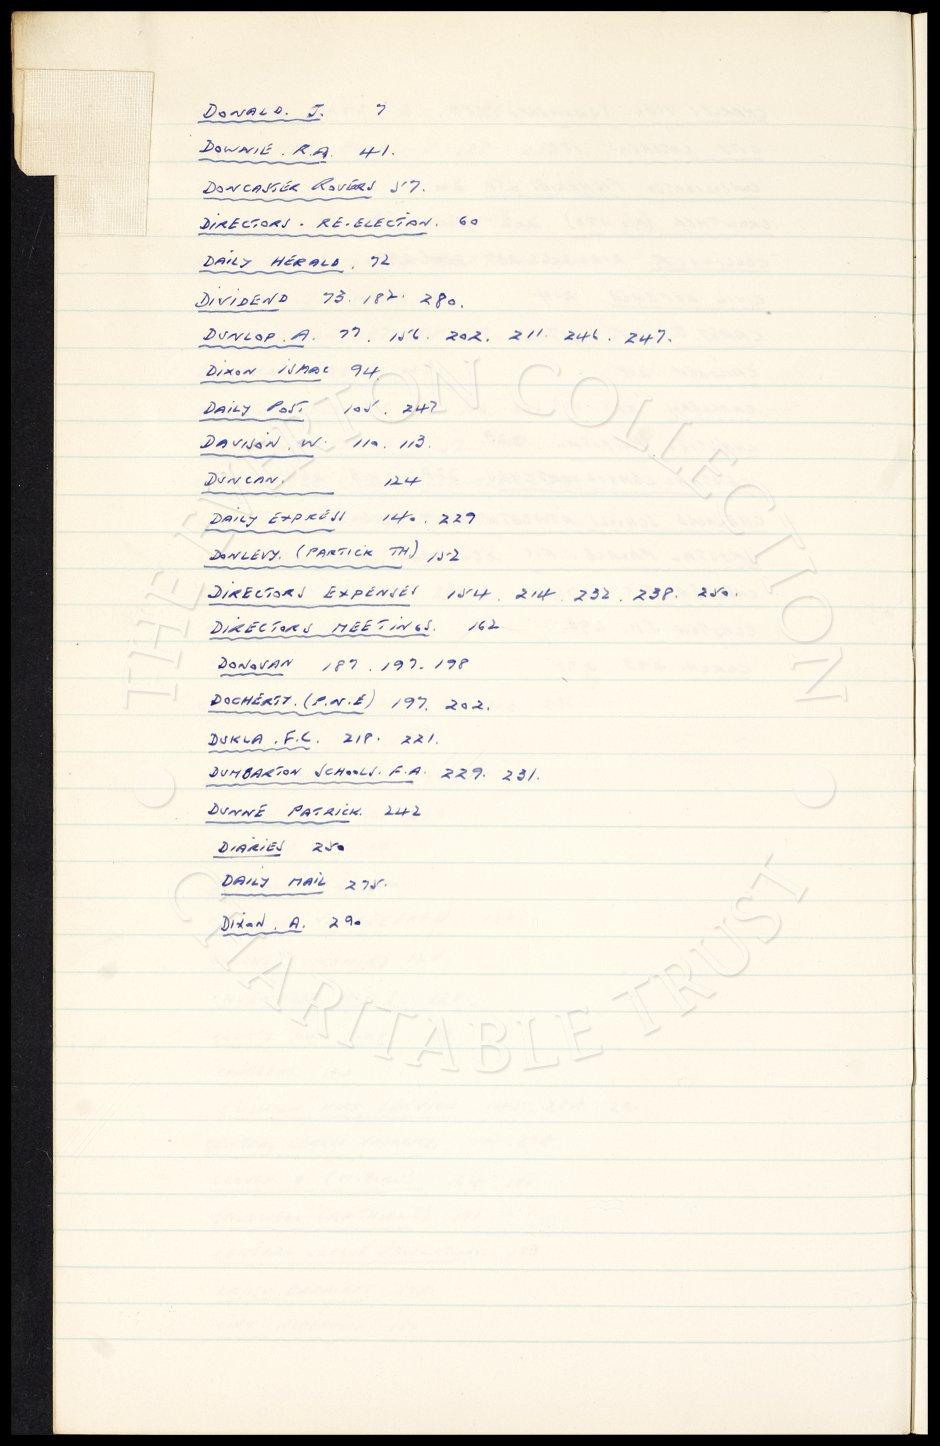 DONALD. J. 7
DOWNIE. R.A. 41.
DONCASTER ROVERS 57.
DIRECTORS. RE.ELECTION. 60
DAILY HERALD. 72
DIVIDEND 73. 182. 280.
DUNLOP. A. 77. 156. 202. 211. 246. 247.
DIXON ISAAC 94
DAILY POST 105. 247
DAVISON. W. 110. 113.
DUNCAN. 124
DAILY EXPRESS 140. 229
DONLEVY. (PARTICK TH) 152
DIRECTORS EXPENSES 154. 214. 232. 238. 250.
DIRECTORS MEETINGS. 162
DONOVAN 187. 197. 198
DOCHERTY. (P.N.E) 197. 202.
DUKLA. F.C. 218. 221.
DUMBARTON SCHOOLS. F.A. 229. 231.
DUNNE PATRICK. 242
DIARIES 250
DAILY MAIL 275.
DIXON. A. 290
THE EVERTON COLLECTION
CHARITABLE TRUST